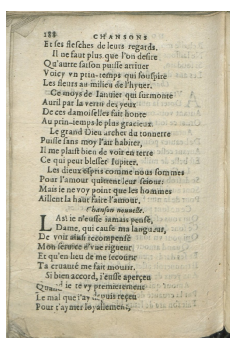 188 CHANSONS
Et ses flesches de leurs regards.
Il ne faut plus que l'on desire
Qu'autre saison puisse arriuer
Voicy vn prin-temps qui souspire
Les fleurs au milieu de l'hyuer.
Ce moys de Ianuier qui surmonte
Auril par la vertu des yeux
De ces damoiselles fait honte
Au prin-temps le plus gracieux.
Le grand Dieu archer du tonnerre
Puisse sans moy l'air habiter,
Il me plaist bien de voir en terre
Ce qui peut blesser Iupiter.
Les dieux espris comme nous sommes
Pour l'amour quittent leur seiour:
Mais ie ne voy point que les hommes
Aillent la haut faire l'amour.
Chanson nouuelle.
LAs! ie n'eusse iamais pensé,
Dame, qui cause ma langueur,
De voir ainsi recompensé
Mon seruice d'vne rigueur,
Et qu'en lieu de me secourir
Ta cruauté me fait mourir.
Si bien accord, i'eusse aperçeu
Quand ie te vy premierement
Le mal que i'ay depuis reçeu
Pour t'aymer loyallement,